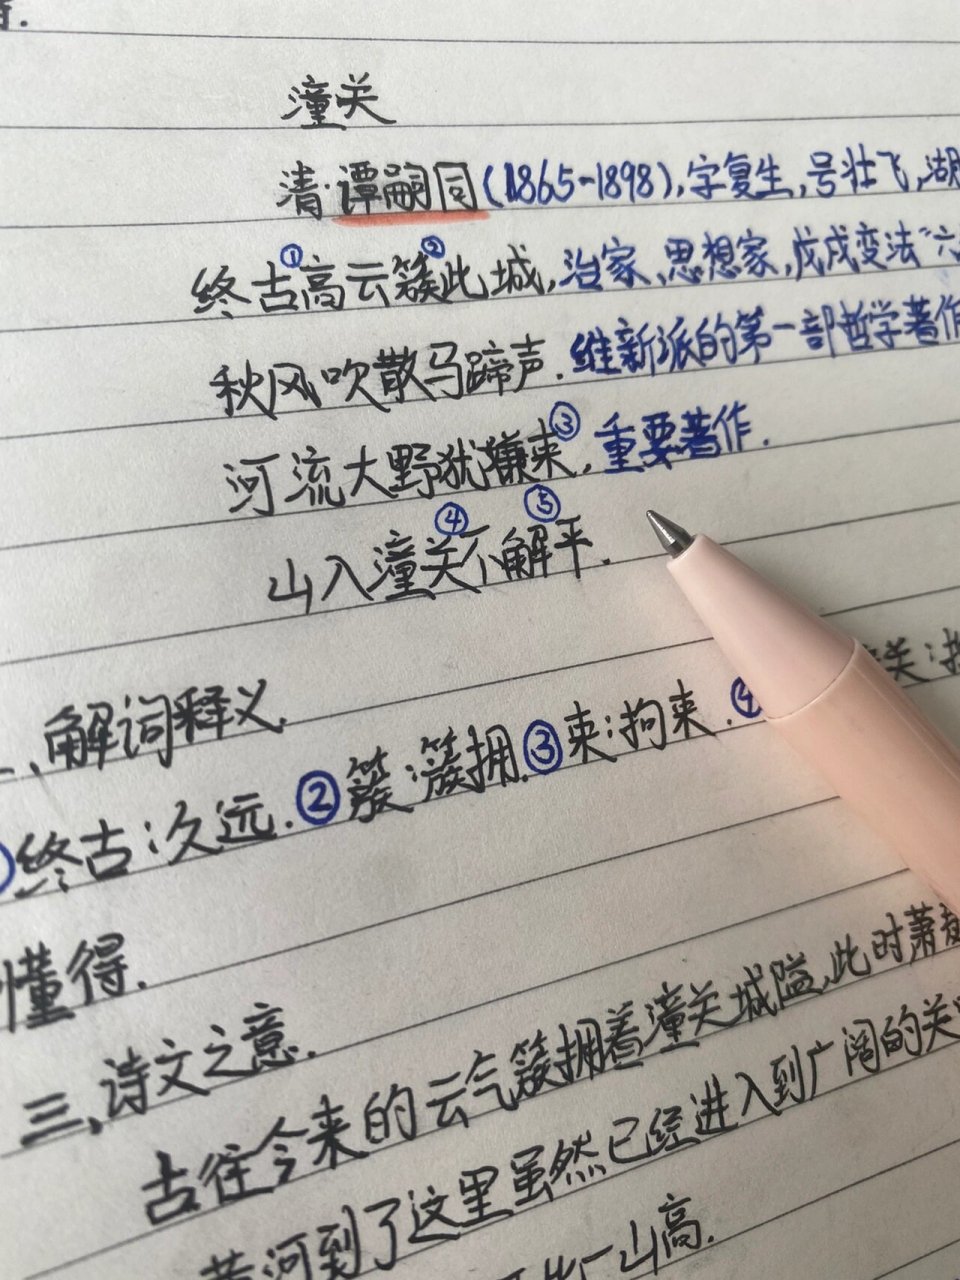 潼关
清·谭嗣同(1865-1898),字复生,号壮飞,湖
终古①高云簇②此城,治家、思想家,戊戌变法"六
秋风吹散马蹄声.维新派的第一部哲学著作
河流大野犹嫌束③,重要著作.
山入潼关④不解⑤平.
、解词释义.
终古:久远.②簇:簇拥.③束:拘束.④关:
懂得.
三、诗文之意.
古往今来的云气簇拥着潼关城隘,此时萧
黄河到了这里虽然已经进入到广阔的关
比一山高.